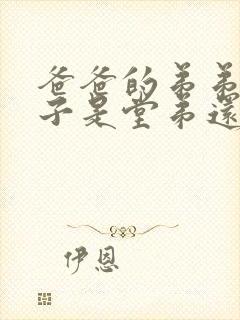 爸爸的弟弟
子是堂弟還
伊恩